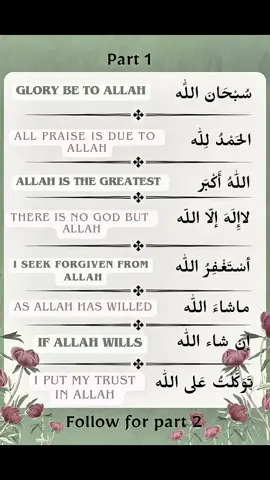 Part 1
GLORY BE TO ALLAH سُبْحَانَ اللّٰه
ALL PRAISE IS DUE TO
ALLAH
الحَمْدُ لِلّٰه
ALLAH IS THE GREATEST اللّٰهُ أَكْبَر
THERE IS NO GOD BUT
ALLAH
لاإِلَهَ إلَّا اللّه
I SEEK FORGIVEN FROM
ALLAH
أسْتَغْفِرُ اللّٰه
AS ALLAH HAS WILLED ماشاءَ اللّٰه
IF ALLAH WILLS إن شاء اللّٰه
I PUT MY TRUST
IN ALLAH
تَوَكَّلتُ عَلى اللّٰه
Follow for part 2